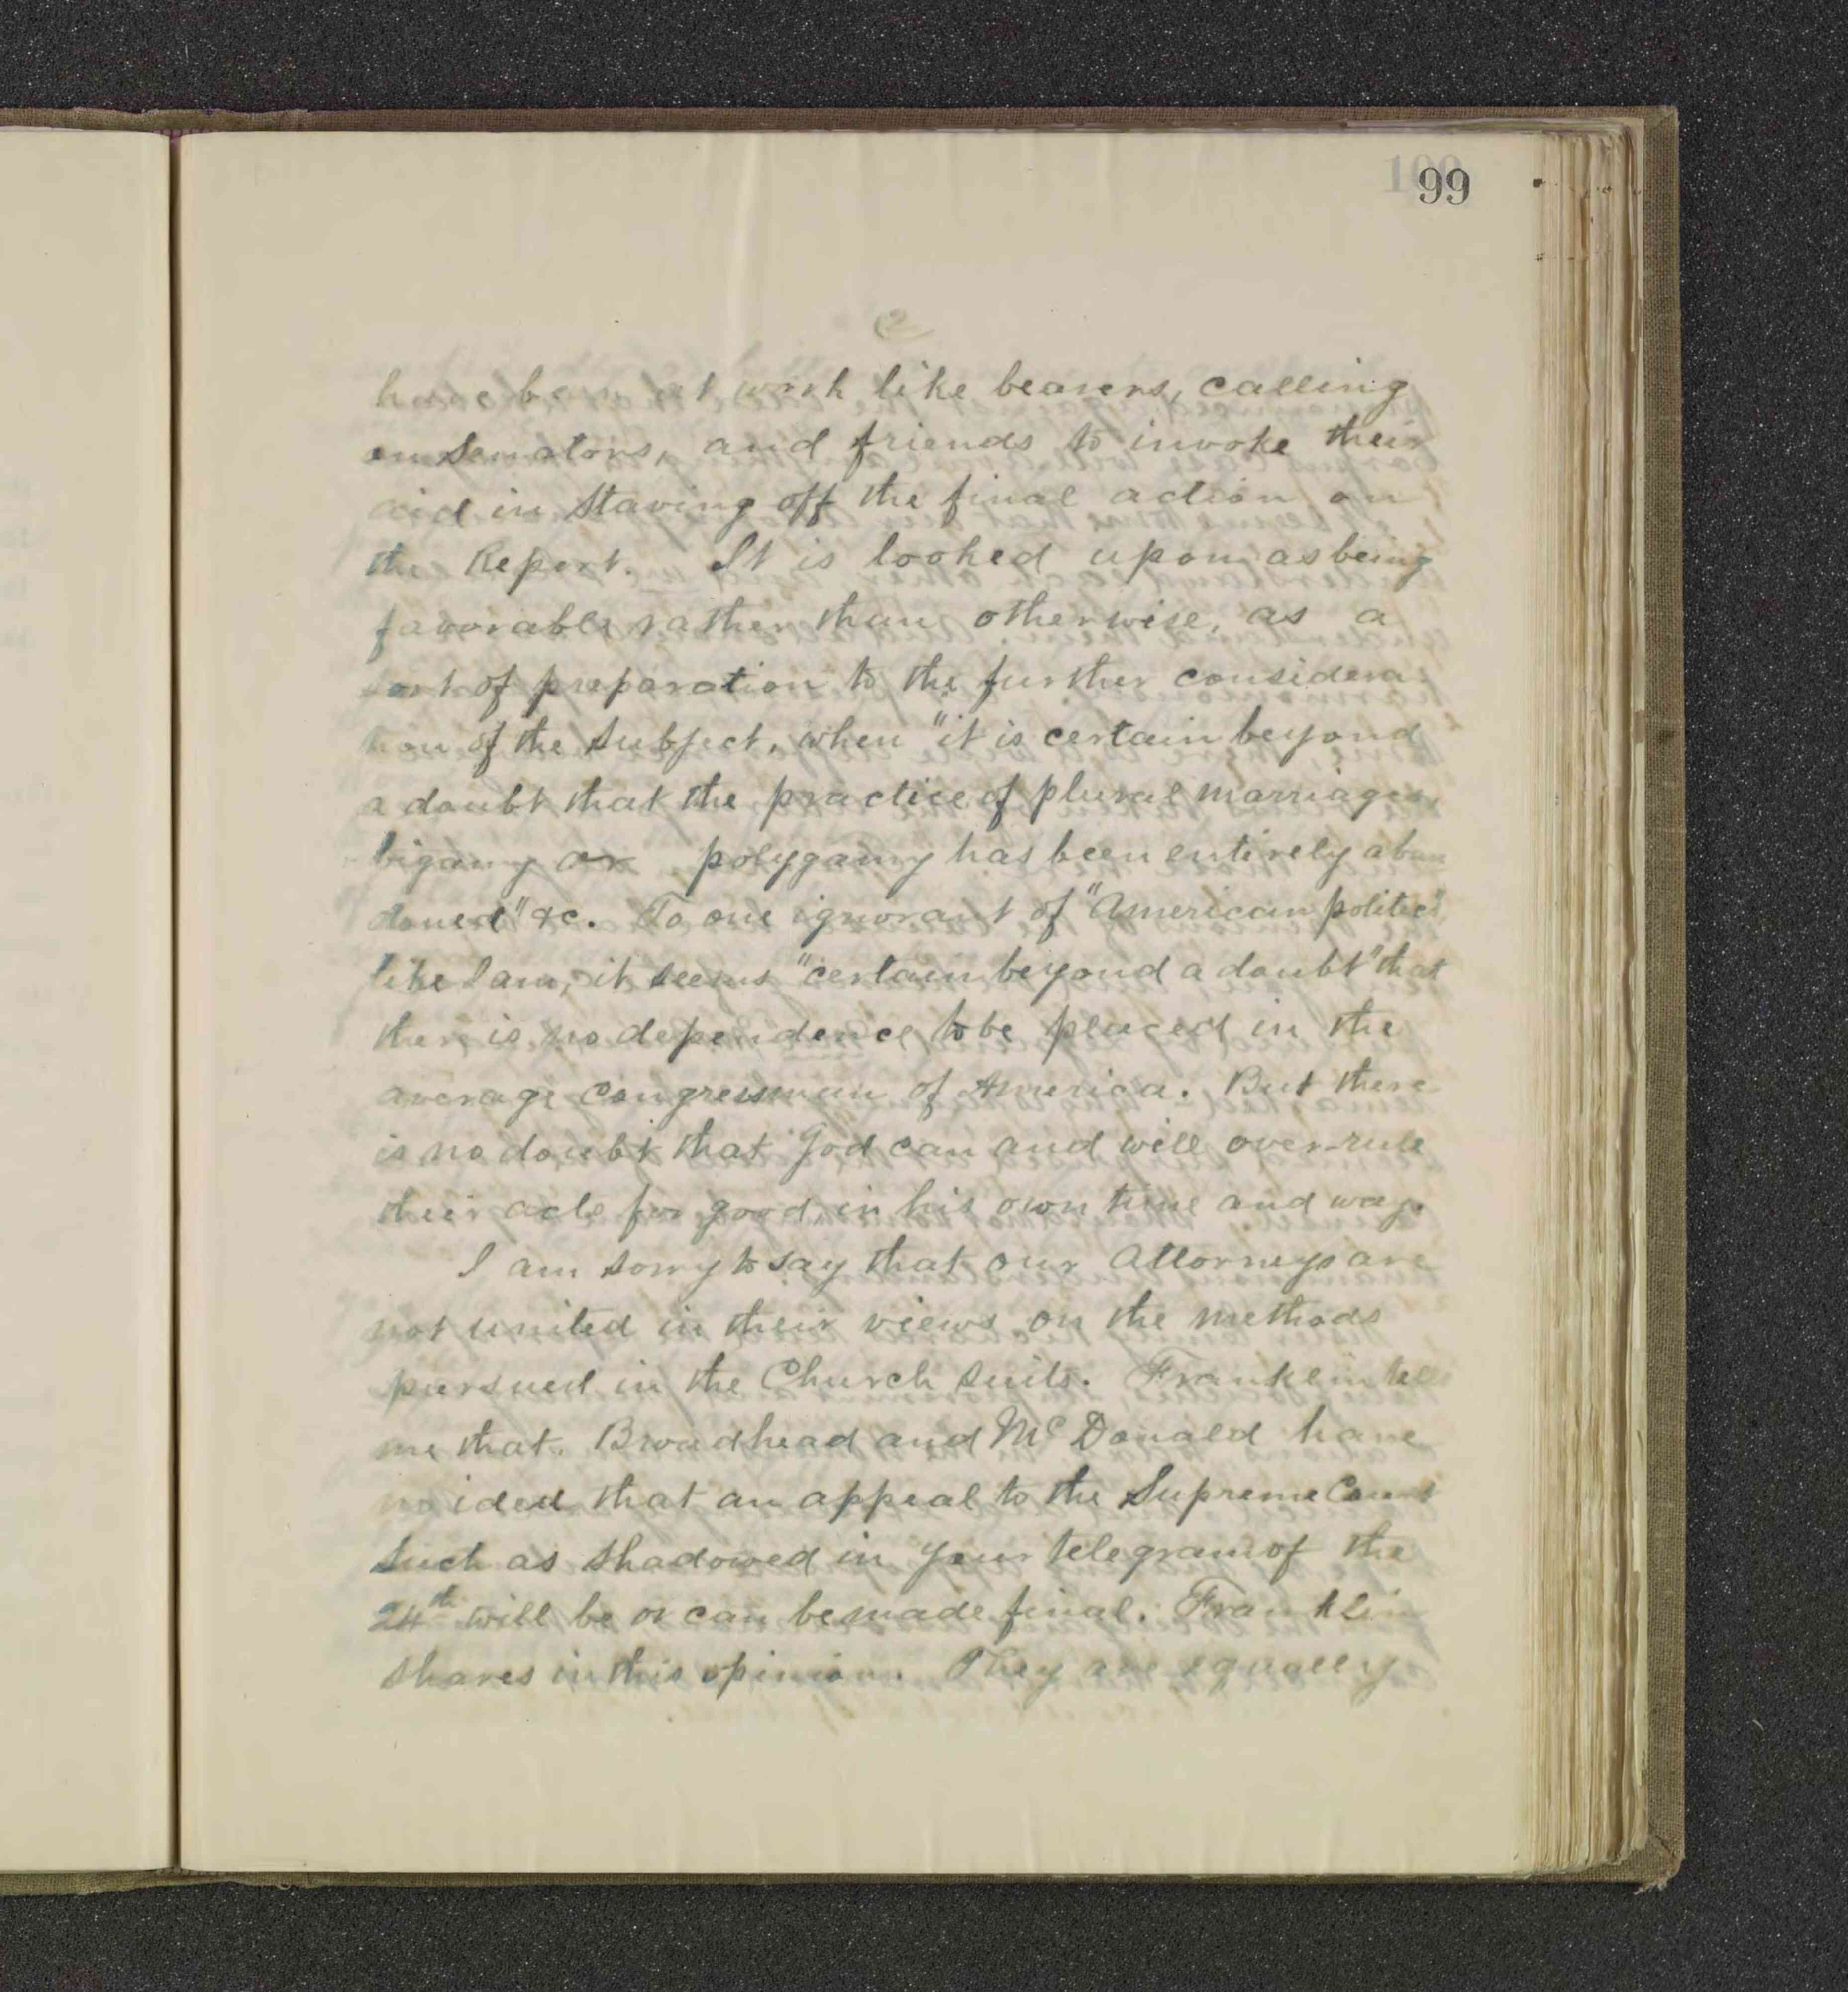 99
2
have been at work like beavers, calling
on Senators, and friends to invoke their
aid in staving off the final action on
the Report. It is looked upon as being
favorable rather than otherwise, as a
sort of preparation to the further considera-
tion of the subject, when "it is certain beyond
a doubt that the practice of plural marriages,
bigamy or polygamy has been entirely aban
doned" &c. To one ignorant of "American politics"
like I am, it seems "certain beyond a doubt" that
there is no dependence to be placed in the
average congressman of America. But there
is no doubt that God can and will over-rule
their acts for good, in his own time and way.
I am sorry to say that our Attorneys are
not united in their views on the methods
pursued in the Church suits. Franklin tells
me that Broadhead and McDonald have
no idea that an appeal to the Supreme Court
such as shadowed in your telegram of the
24th will be or can be made final. Franklin
shares in this opinion. They are equally